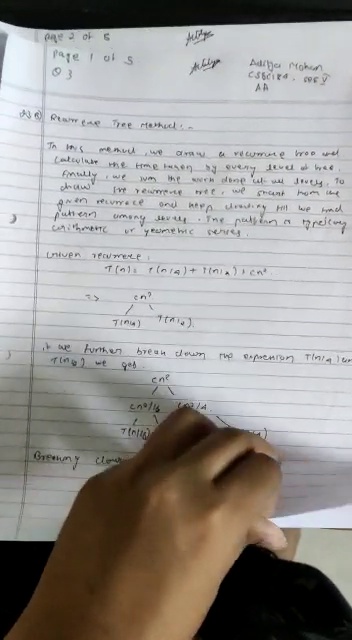 Page 2 of 5
Page 1 of 5
Q3
Aditya Mohan
AA
Recurrence Tree Method:-
In this method, we draw a recurrence tree and
calculate the time taken by every level of tree.
Finally, we sum the work done at all levels. To
draw the recurrence tree, we start from the
given recurrence and keep drawing till we find
pattern among levels. The pattern is typically
arithmetic or geometric series.
Given recurrence,
T(n) = T(n/4) + T(n/2) + cn²
=> cn²
T(n/4) T(n/2)
If we further break down the expression T(n/4) and
T(n/2) we get
cn²
cn²/16 cn²/4
T(n/16)
Breaking down